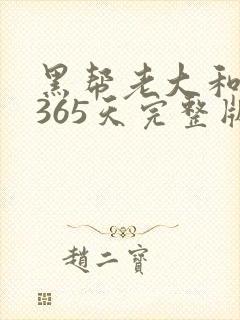 黑帮老大和
365天完整版
趙二寶